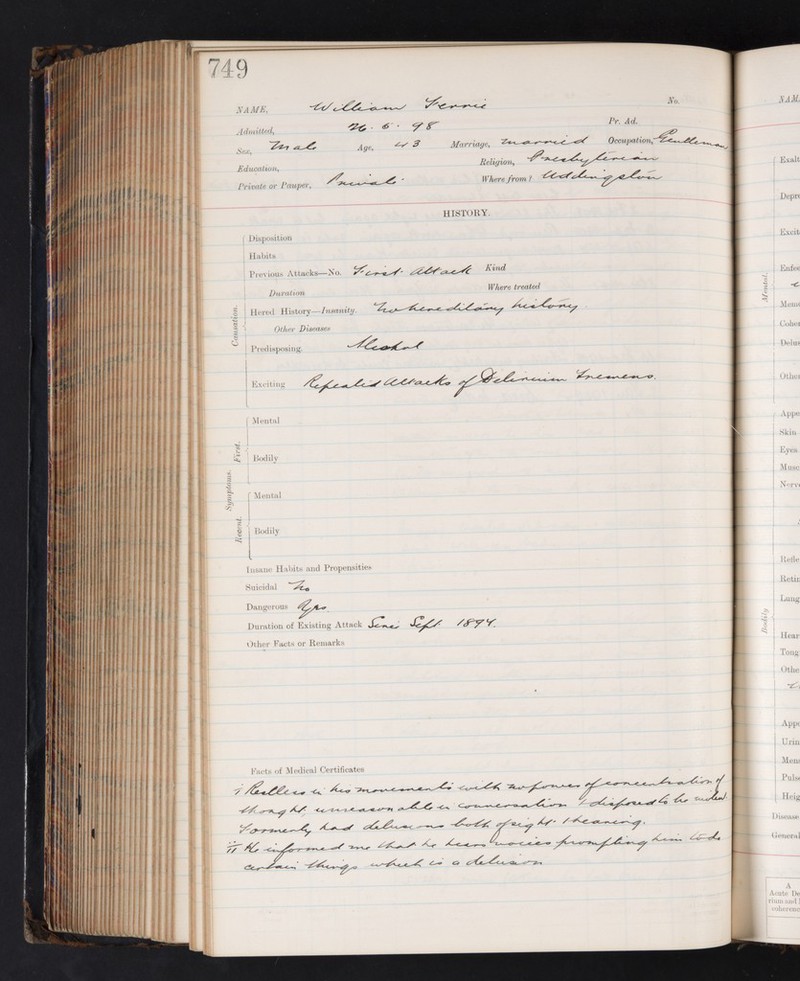 749
NAME, William Ferrie No.
Admitted, 26. 5. 98 Pr. Ad.
Sex, Male Age, 43 Marriage, married Occupation, Gentleman
Education, Religion, Presbyterian
Private or Pauper, Private. Where from? Uddingston
HISTORY.
Disposition
Habits
Previous Attacks—No. First attack Kind
Duration Where treated
Hered History—Insanity. No hereditary history
Other Diseases
Predisposing. Alcohol
Exciting Repeated attacks of Delirium Tremens.
Causation.
Mental
Bodily
First.
Symptoms.
Mental
Bodily
Recent.
Insane Habits and Propensities
Suicidal No
Dangerous Yes
Duration of Existing Attack Since Sept. 1894.
Other Facts or Remarks
Facts of Medical Certificates
I Restless in his movements with no power of concentration of
thought, unreasonable in conversation & disposed to be violent
Formerly had delusions both of sight & hearing.
II He informed me that he hears voices prompting him to do
certain things which is a delusion
NAM
Exalt
Depre
Excit
Enfee
Mental.
Memo
Coher
Delus
Other
Appe
Skin
Eyes
Musc
Nerv
Refle
Retin
Lung
Bodily
Hear
Tong
Othe
Appe
Urin
Mens
Puls
Heig
Disease
General
A
Acute De
rium and
coherenc